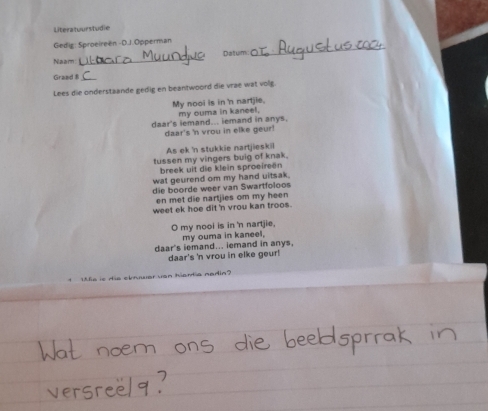 Literatuurstudie
Gedig: Sproeireën - D.J. Opperman
Naam: Muundjua Datum: 05 Augustus 2024
Graad 8 C
Lees die onderstaande gedig en beantwoord die vrae wat volg.
My nooi is in 'n nartjie,
my ouma in kaneel,
daar's iemand... iemand in anys,
daar's 'n vrou in elke geur!
As ek 'n stukkie nartjieskil
tussen my vingers buig of knak,
breek uit die klein sproeireën
wat geurend om my hand uitsak,
die boorde weer van Swartfoloos
en met die nartjies om my heen
weet ek hoe dit 'n vrou kan troos.
O my nooi is in 'n nartjie,
my ouma in kaneel,
daar's iemand... iemand in anys,
daar's 'n vrou in elke geur!
Wie is die skrywer van hierdie gedig?
Wat noem ons die beeldsprrak in
versreël 9?